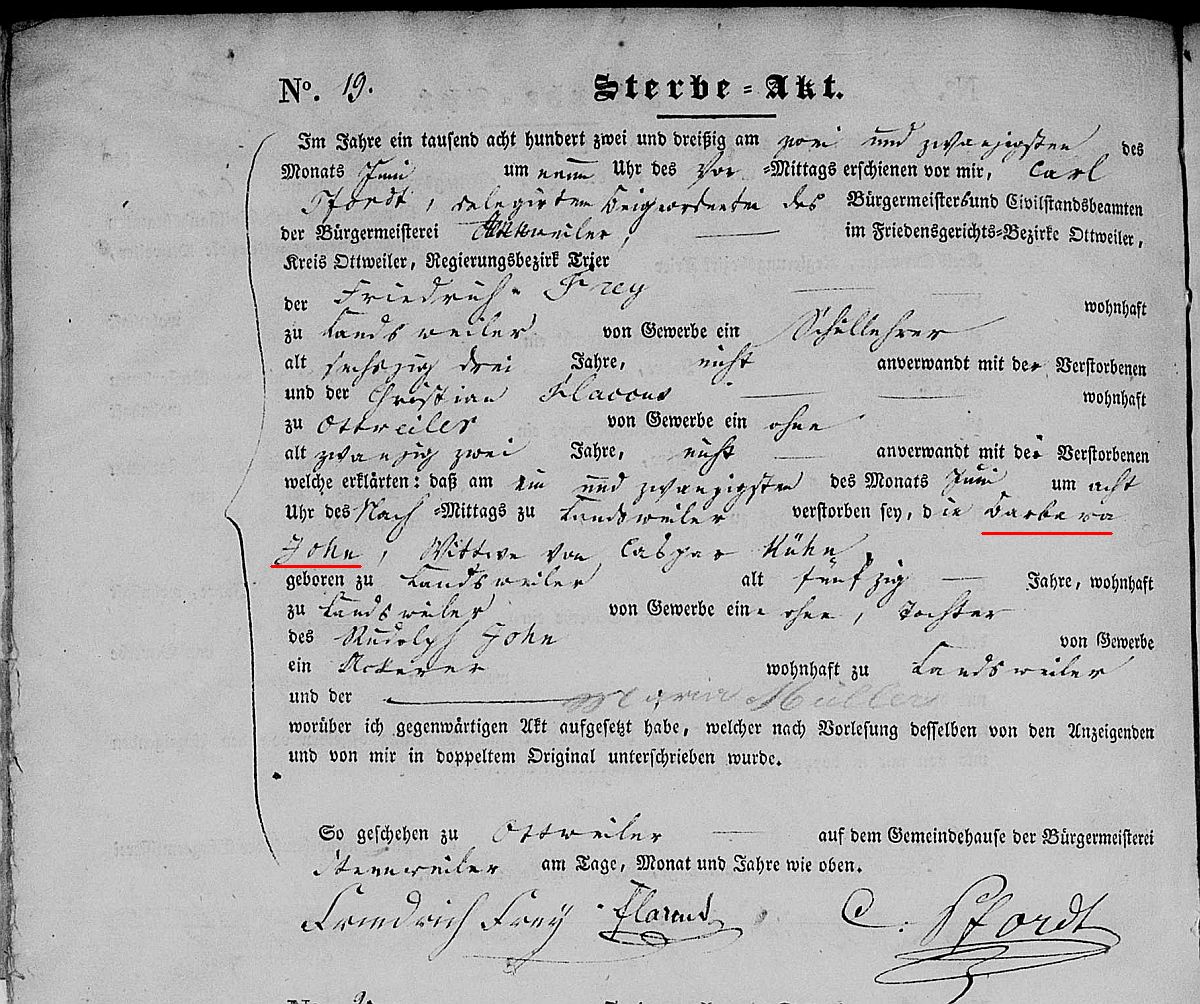 No. 19. Sterbe-Akt.
Im Jahre ein tausend acht hundert zwei und dreißig am zwei und zwanzigsten des
Monats Juni um neun Uhr des Vor-Mittags erschienen vor mir, Carl
Pfordt, delegirten Beigeordneten des Bürgermeisters und Civilstandsbeamten
der Bürgermeisterei im Friedensgerichts-Bezirke Ottweiler,
Kreis Ottweiler, Regierungsbezirk Trier
der Friedrich Frey wohnhaft
zu Landsweiler von Gewerbe ein Schullehrer
alt sechszig drei Jahre, nicht anverwandt mit der Verstorbenen
und der Christian wohnhaft
zu Ottweiler von Gewerbe ein ohne
alt zwanzig zwei Jahre, nicht anverwandt mit der Verstorbenen
welche erklärten: daß am ein und zwanzigsten des Monats Juni um acht
Uhr des Nach-Mittags zu Landsweiler verstorben sey, die Barbara
John, Wittwe von Caspar Kühn
geboren zu Landsweiler alt fünfzig Jahre, wohnhaft
zu Landsweiler von Gewerbe ein ohne, Tochter
des Rudolph John von Gewerbe
ein Ackerer wohnhaft zu Landsweiler
und der Maria Müller
worüber ich gegenwärtigen Akt aufgesetzt habe, welcher nach Vorlesung desselben von den Anzeigenden
und von mir in doppeltem Original unterschrieben wurde.
So geschehen zu Ottweiler auf dem Gemeindehause der Bürgermeisterei
Stennweiler am Tage, Monat und Jahre wie oben.
Friedrich Frey C. Pfordt